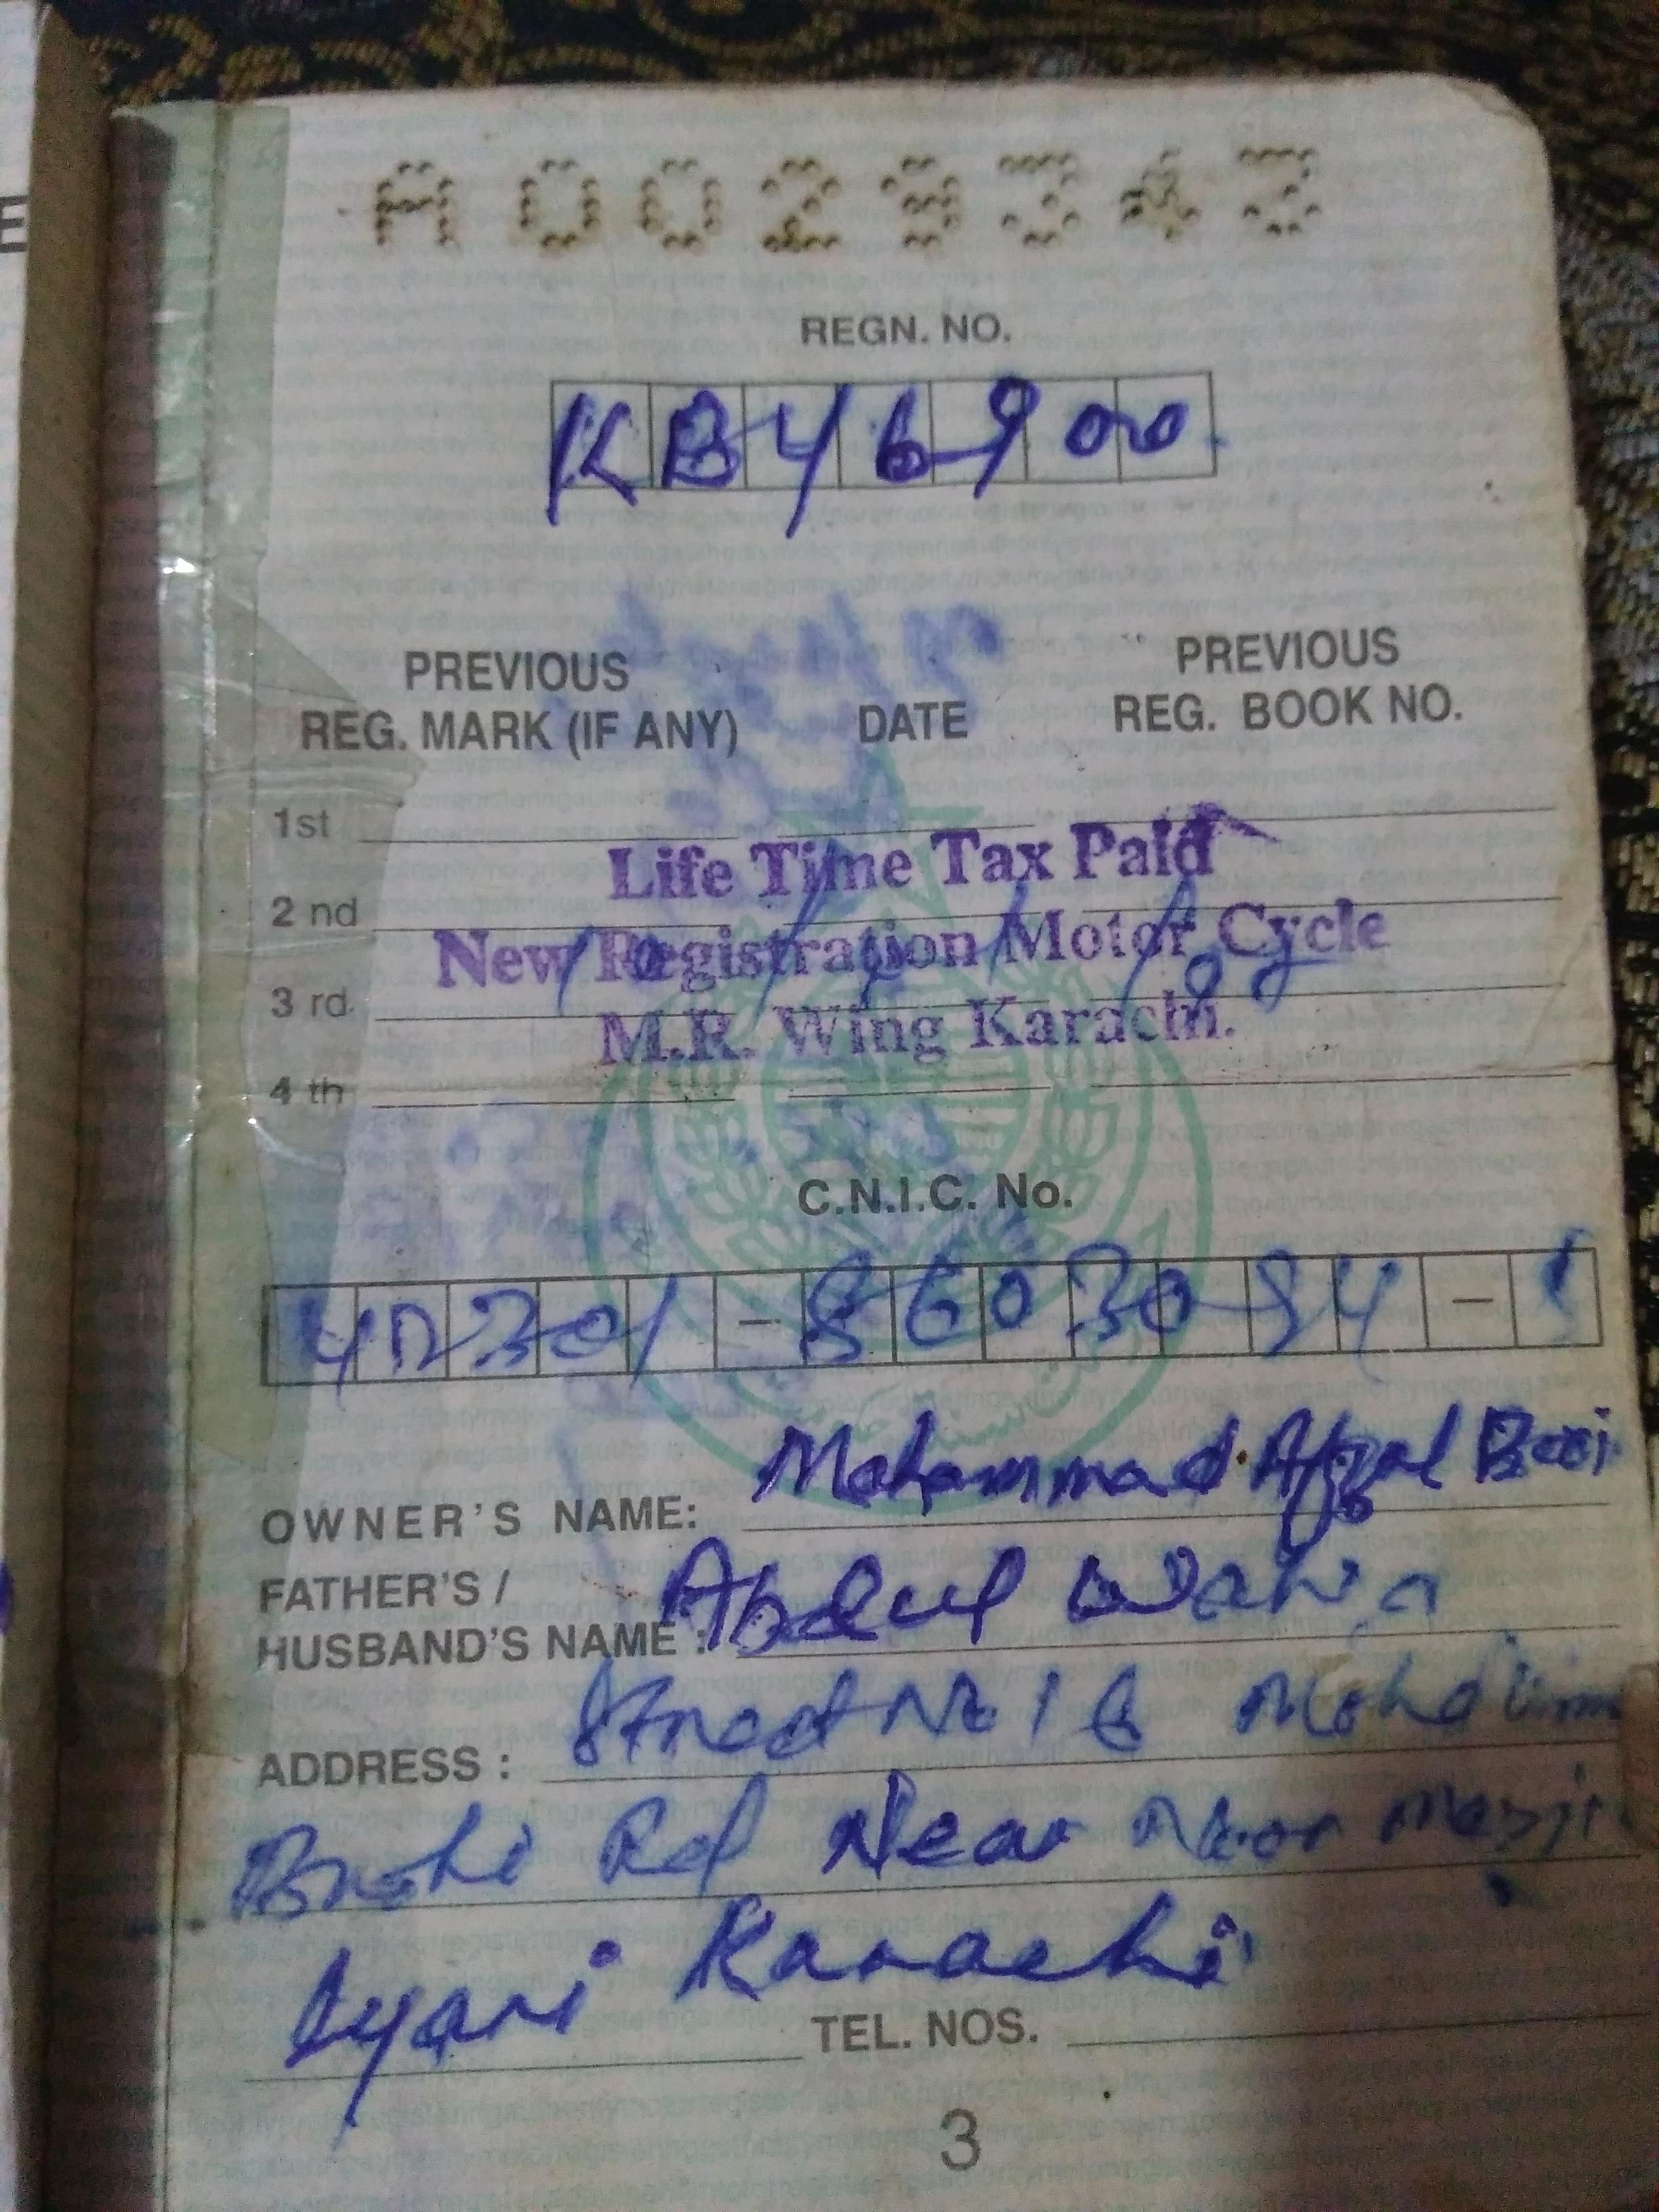 E
A0029343
REGN. NO.
KB46900
PREVIOUS
REG. MARK (IF ANY)
DATE
PREVIOUS
REG. BOOK NO.
1st
Life Time Tax Paid
2 nd
New Registration Motor Cycle
3 rd.
M.R. Wing Karachi.
4 th
C.N.I.C. No.
42301-8603094-1
OWNER'S NAME: Mohammad Afzal
FATHER'S /
HUSBAND'S NAME : Abdul
ADDRESS : Street No 16
Brohi Rd Near Noor
Lyari Karachi
TEL. NOS.
3